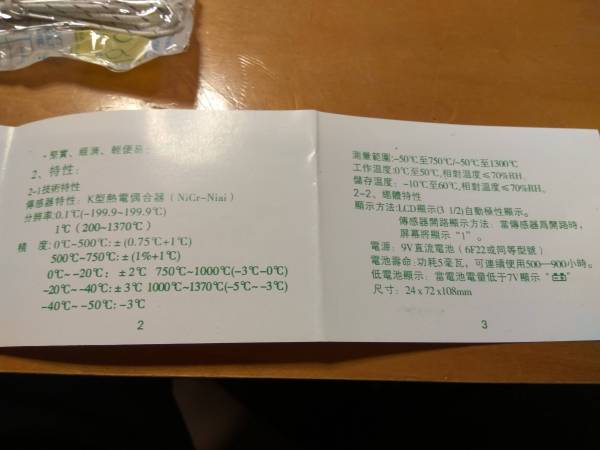 ·堅實、經濟、輕便易
2、特性：
2-1技術特性
傳感器特性：K型熱電偶合器（NiCr-Niai）
分辨率:0.1℃(-199.9~199.9℃)
1℃（200~1370℃）
精 度:0℃~500℃:±(0.75℃+1℃)
500℃~750℃:±(1%+1℃)
0℃~-20℃：±2℃ 750℃~1000℃(-3℃-0℃)
-20℃~-40℃:±3℃ 1000℃~1370℃(-5℃~-3℃)
-40℃~-50℃:-3℃
2
測量範圍:-50℃至750℃/-50℃至1300℃
工作溫度:0℃至50℃,相對溫度≤70%RH.
儲存溫度：-10℃至60℃,相對溫度≤70%RH。
2-2、總體特性
顯示方法:LCD顯示(3 1/2)自動極性顯示。
傳感器開路顯示方法：當傳感器爲開路時，
屏幕將顯示"1"。
電源：9V直流電池（6F22或同等型號）
電池壽命:功耗5毫瓦，可連續使用500—900小時。
低電池顯示：當電池電量低于7V顯示“ ”
尺寸：24 x 72 x108mm
3